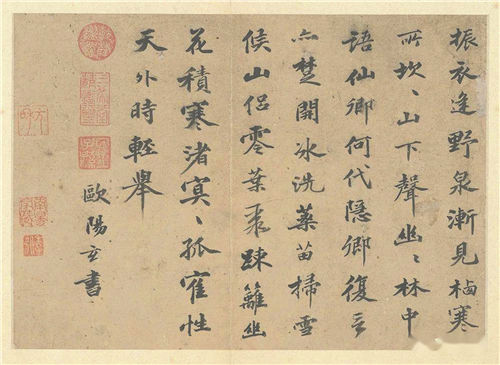 振衣逢野泉漸見栖寒
所坎、山下聲幽、林中
語仙卿何代隱卿復言
亦楚開冰洗藥苗掃雪
候山侶零葉聚踈籬幽
花積寒渚冥、孤隺性
天外時輕舉
歐陽玄書